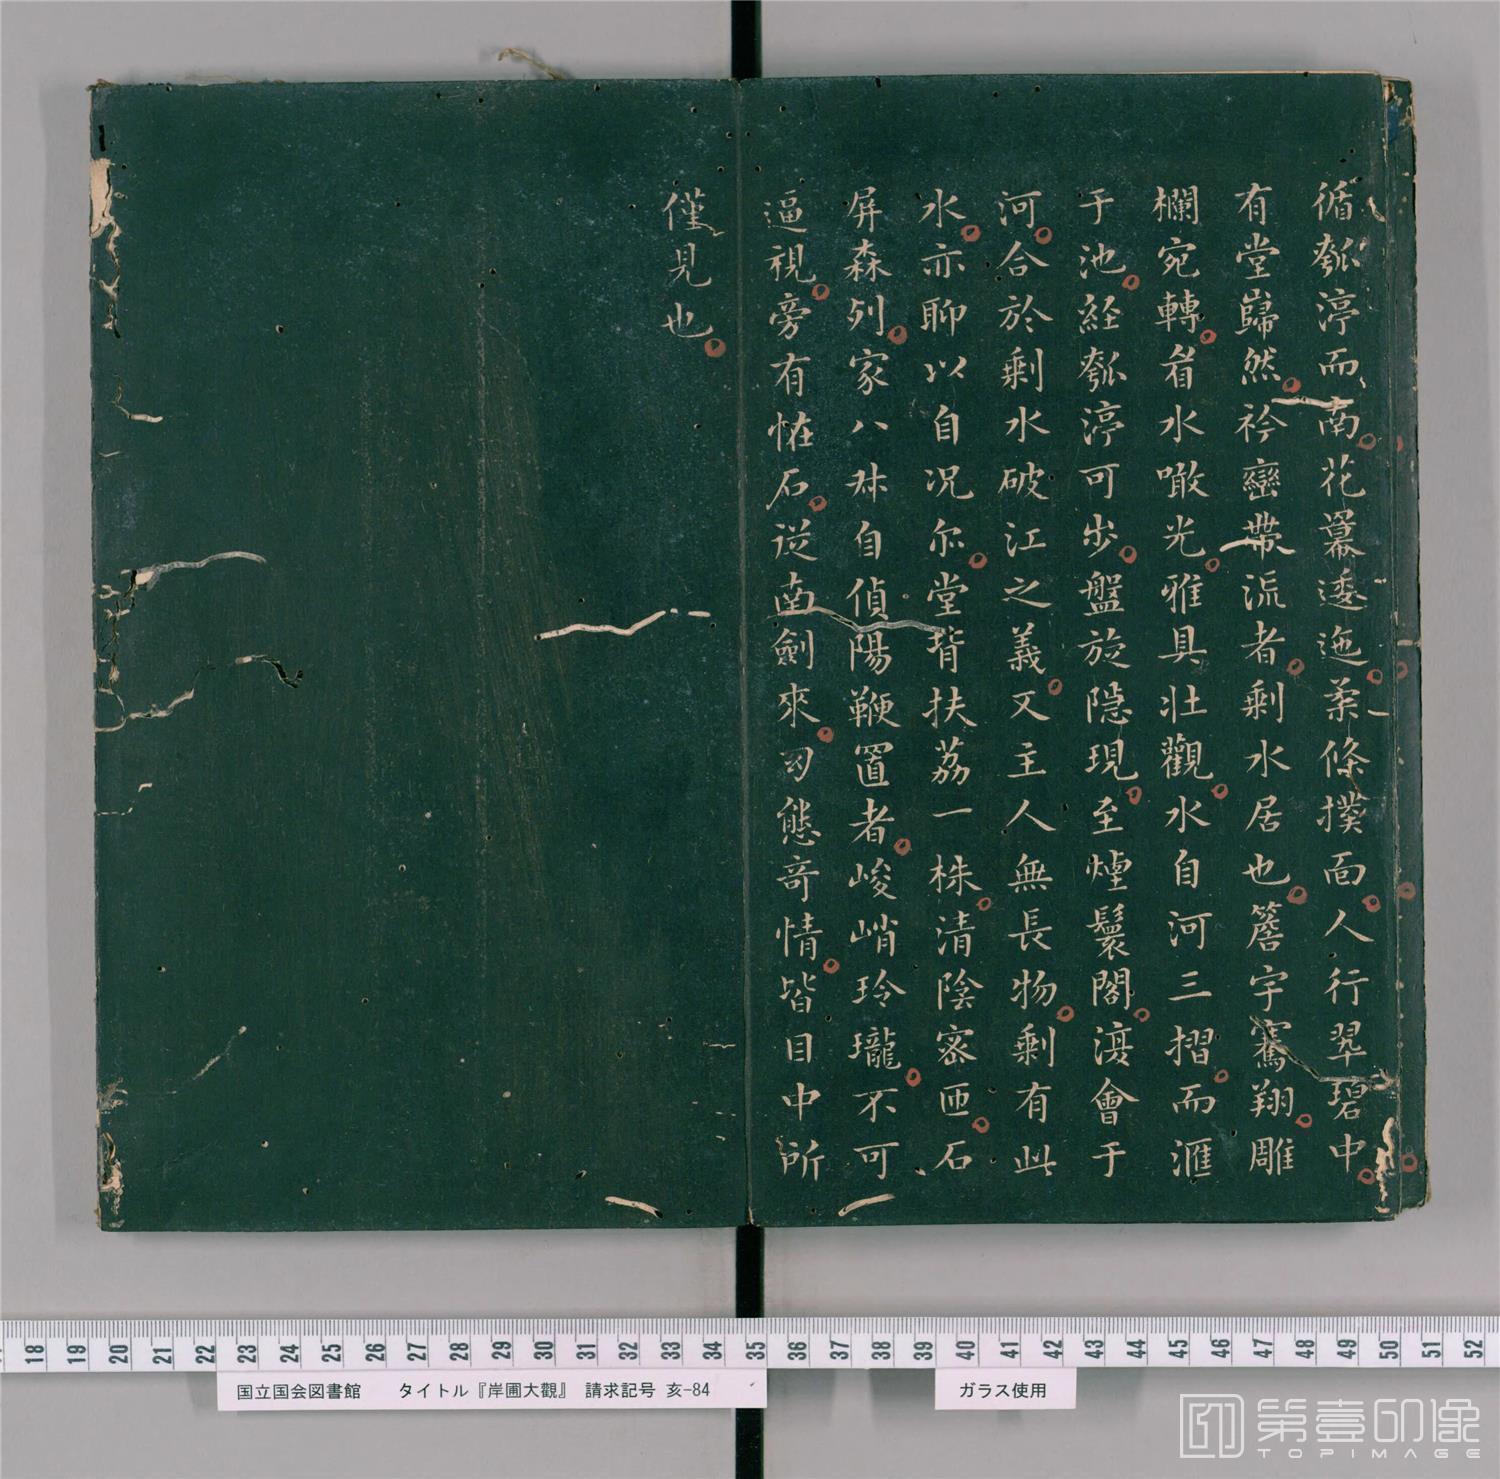 循瓠渟而南花羃逶迤柔條撲面人行翠碧中
有堂巋然衿巒帶流者剩水居也簷宇騫翔雕
欄宛轉看水噉光雅具壯觀水自河三摺而滙
于池経瓠渟可步盤旋隠現至煙鬟閣復會于
河合於剩水破江之義又主人無長物剩有此
水亦聊以自况尒堂背扶荔一株清陰密匝石
屏森列家八叔自偵陽鞭置者峻峭玲瓏不可
逼視旁有恠石從南劍來幻態竒情皆目中所
僅見也
18 19 20 21 22 23 24 25 26 27 28 29 30 31 32 33 34 35 36 37 38 39 40 41 42 43 44 45 46 47 48 49 50 51 52
国立国会図書館 タイトル『岸圃大觀』 請求記号 亥-84
ガラス使用
第壹印像
TOPIMAGE